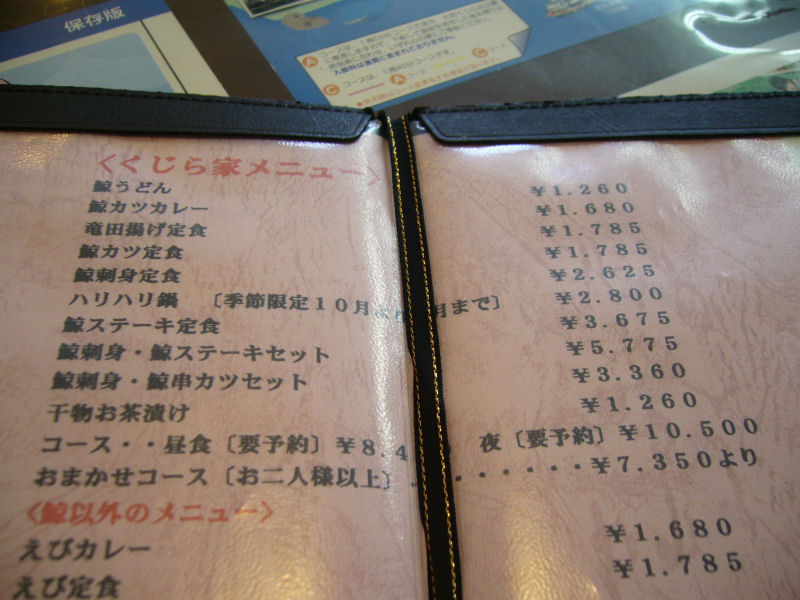 保存版
Ⓐコースは、
Ⓒコースは、1周40分コースです。
Ⓒ コース Ⓐコース Ⓒコース
〈くじら家メニュー〉
鯨うどん ￥1.260
鯨カツカレー ￥1.680
竜田揚げ定食 ￥1.785
鯨カツ定食 ￥1.785
鯨刺身定食 ￥2.625
ハリハリ鍋 〔季節限定10月より 月まで〕 ￥2.800
鯨ステーキ定食 ￥3.675
鯨刺身・鯨ステーキセット ￥5.775
鯨刺身・鯨串カツセット ￥3.360
干物お茶漬け ￥1.260
コース・・昼食〔要予約〕￥8.4 夜〔要予約〕￥10.500
おまかせコース〔お二人様以上〕・・・・・・・・￥7.350より
〈鯨以外のメニュー〉
えびカレー ￥1.680
えび定食 ￥1.785